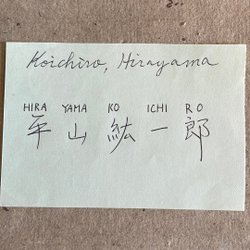 Koichiro, Hirayama
HIRA YAMA KO ICHI RO
平 山 紘 一 郎